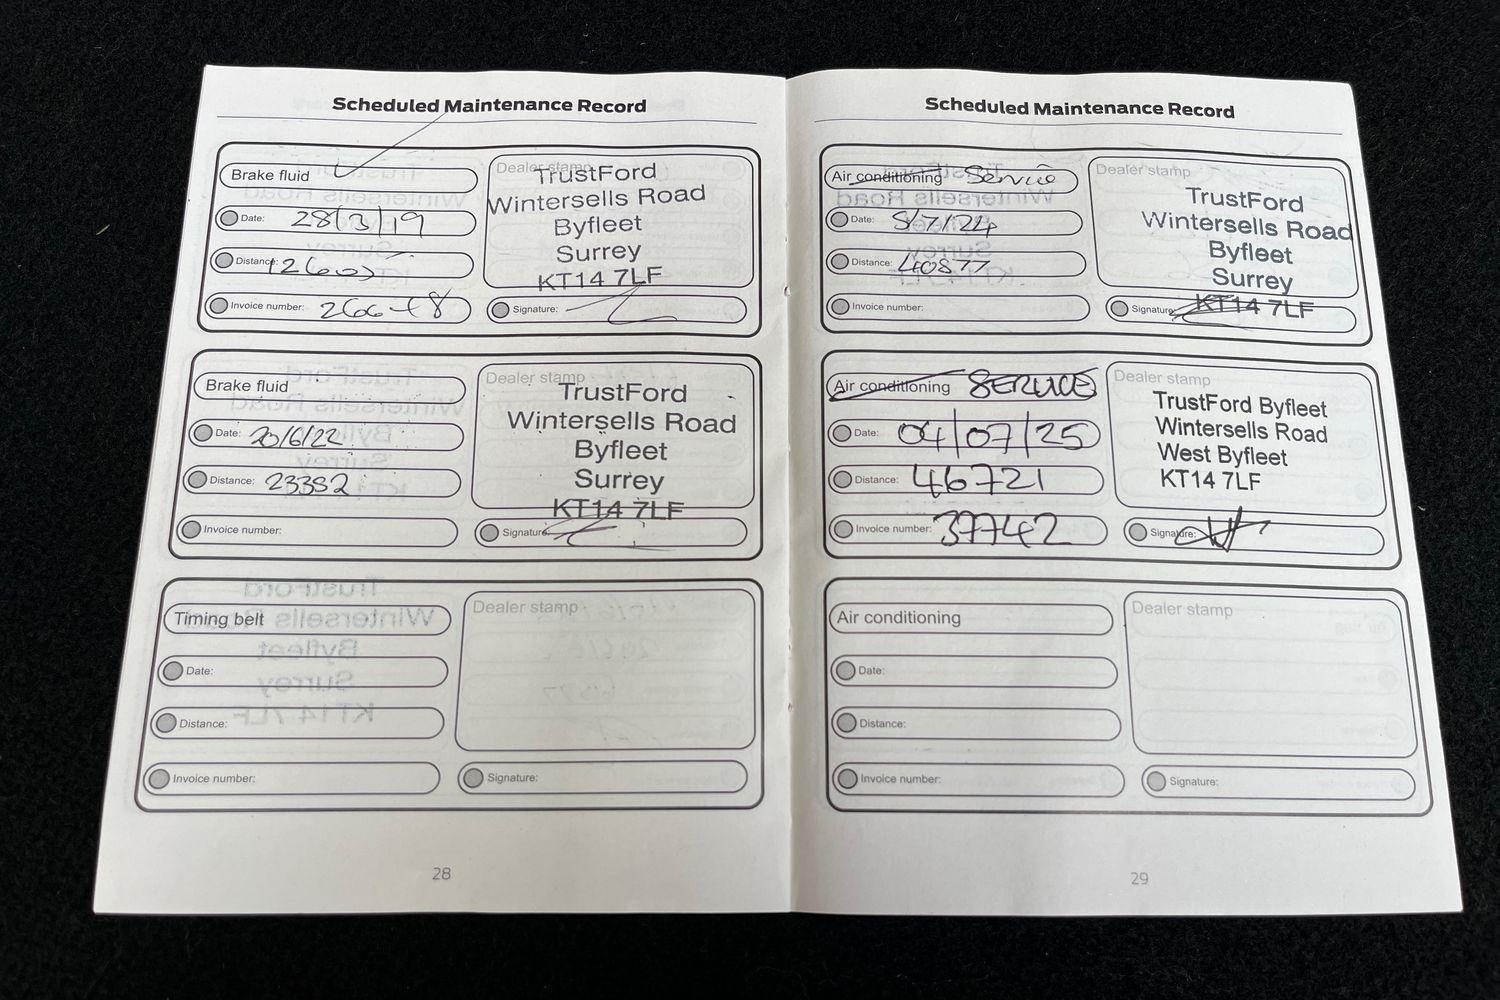 Scheduled Maintenance Record
Brake fluid
Date: 28/3/19
Distance:
Invoice number:
Dealer stamp
TrustFord
Wintersells Road
Byfleet
Surrey
KT14 7LF
Signature:
Brake fluid
Date: 20/6/22
Distance: 23352
Invoice number:
Dealer stamp
TrustFord
Wintersells Road
Byfleet
Surrey
KT14 7LF
Signature:
Timing belt
Date:
Distance:
Invoice number:
Dealer stamp
Signature:
28
Scheduled Maintenance Record
Air conditioning Service
Date: 8/7/24
Distance: 40877
Invoice number:
Dealer stamp
TrustFord
Wintersells Road
Byfleet
Surrey
KT14 7LF
Signature:
Air conditioning SERVICE
Date: 04/07/25
Distance: 46721
Invoice number: 37742
Dealer stamp
TrustFord Byfleet
Wintersells Road
West Byfleet
KT14 7LF
Signature:
Air conditioning
Date:
Distance:
Invoice number:
Dealer stamp
Signature:
29